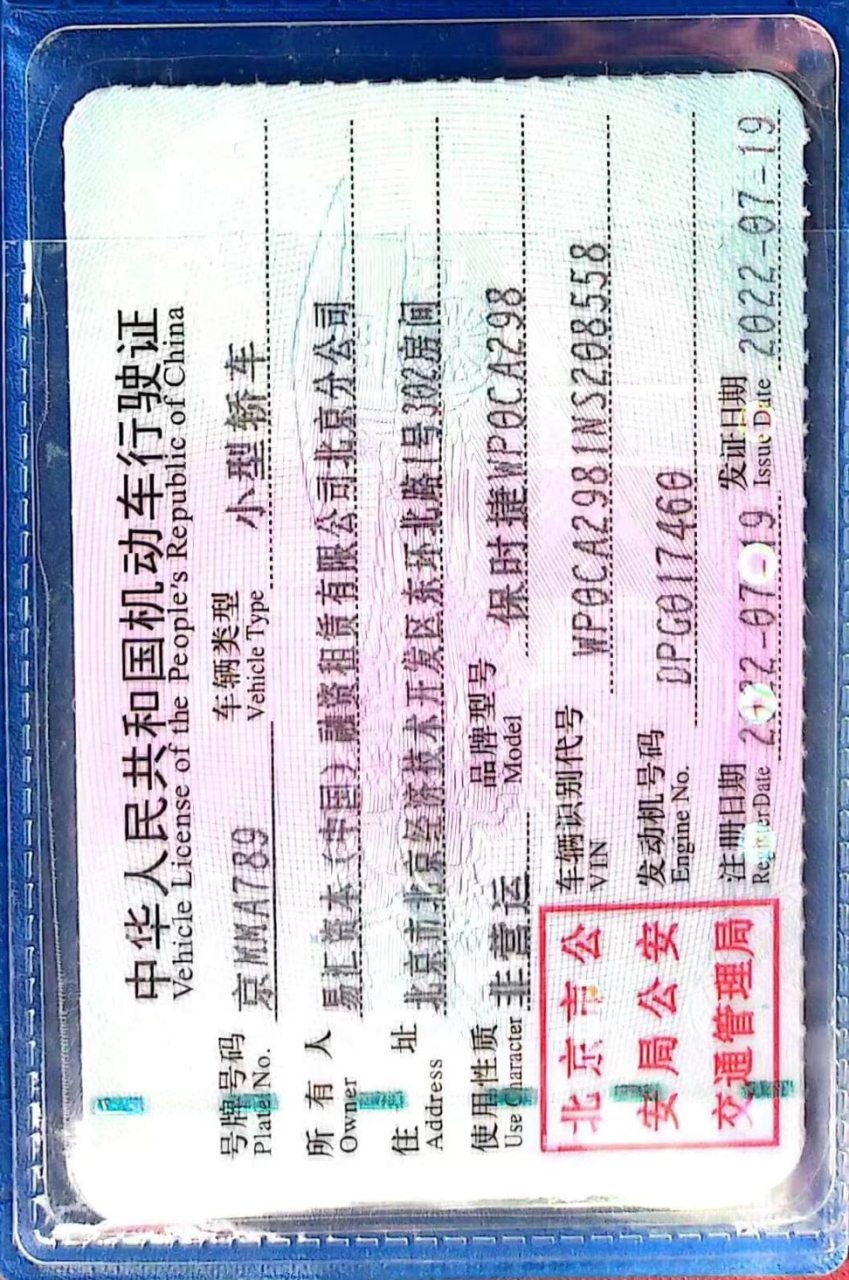 中华人民共和国机动车行驶证
Vehicle License of the People's Republic of China
号牌号码 京MMA789 车辆类型 小型轿车
Plate No. Vehicle Type
所有人 易汇资本(中国)融资租赁有限公司北京分公司
Owner
住址 北京市北京经济技术开发区东环北路1号302房间
Address
使用性质 非营运 品牌型号 保时捷WP0CA298
Use Character Model
北京市公
安局公安
交通管理局
车辆识别代号 WP0CA2981NS208558
VIN
发动机号码 DPG017460
Engine No.
注册日期 2022-07-19 发证日期 2022-07-19
Register Date Issue Date